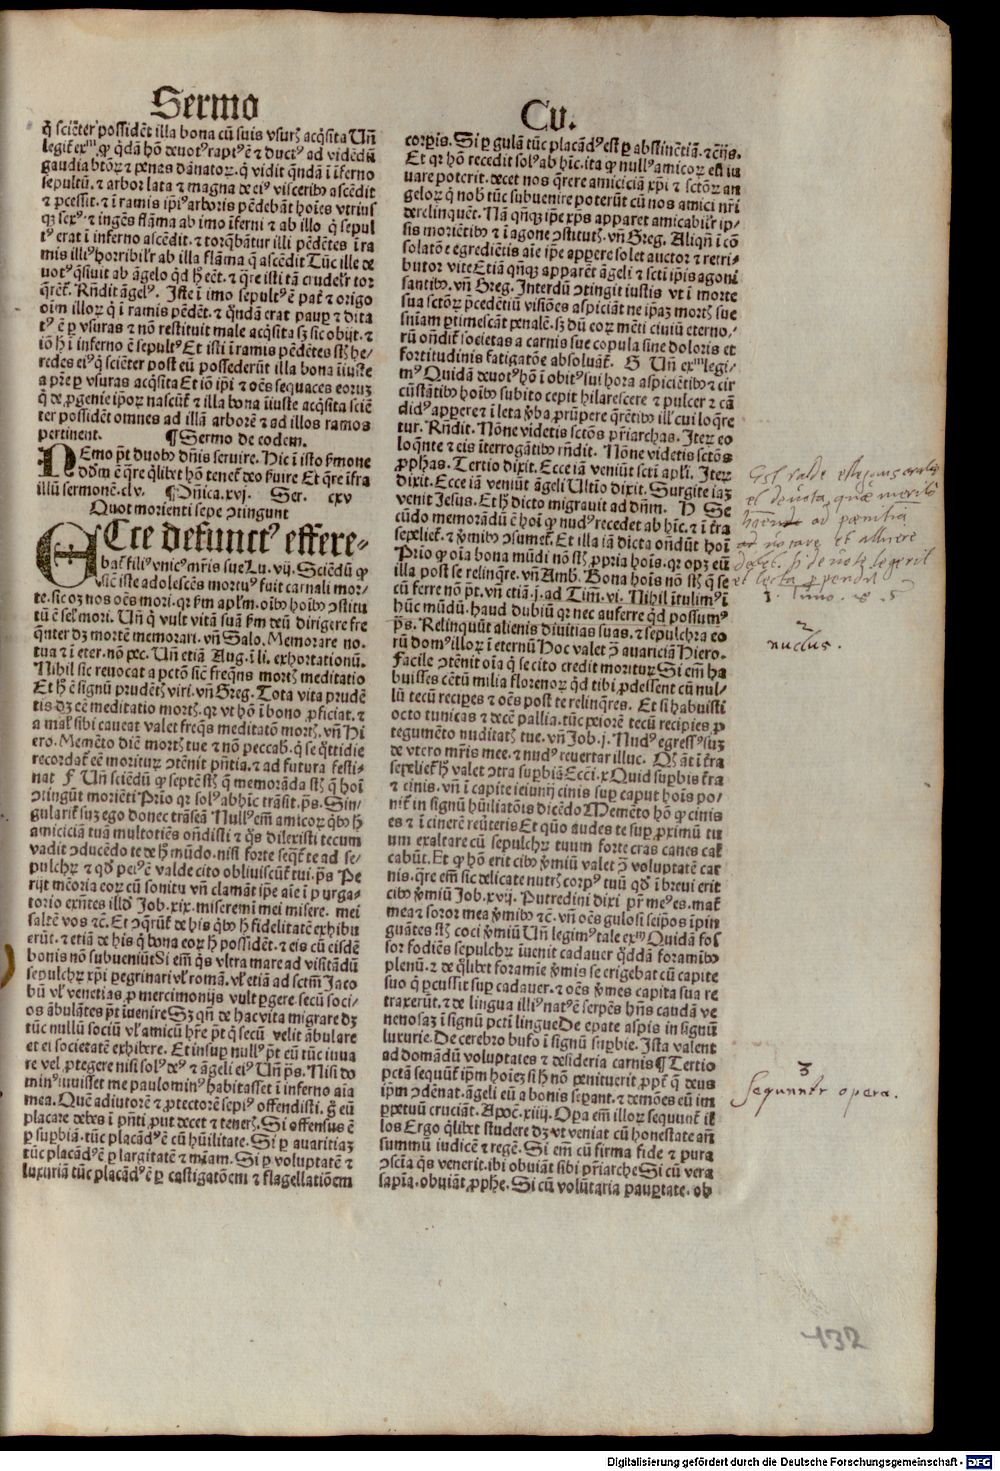 Sermo
Cv.
q̄ sciēter possidēt illa bona cū suis vsurꝭ acq̄sita Vn̄
legit̄ exᵐ. ꝙ q̄dā hō deuotꝰ raptꝰ ē ⁊ ductꝰ ad vidēdū
gaudia btōꝝ ⁊ penas dānatoꝝ. q̄ vidit quēdā ī īferno
sepultū. ⁊ arbor lata ⁊ magna de eiꝰ visceribꝰ ascēdit
⁊ ꝓcessit. ⁊ ī ramis ipīꝰ arboris pēdebāt hoīes vtriusqꝫ sexꝰ. ⁊ ingēs flāma ab imo īferni ⁊ ab illo q̄ sepul
tꝰ erat ī inferno ascēdit. ⁊ torq̄bātur illi pēdētes ī ra
mis illiꝰ horribilr̄ ab illa flāma q̄ ascēdit Tūc ille de
uotꝰ q̄siuit ab āgelo qd̄ h̄ eēt. ⁊ q̄re isti tā crudelr̄ tor
q̄rēt̄. Rn̄dit āgelꝰ. Iste ī imo sepultꝰ ē pat̄ ⁊ origo
oīm illoꝝ q̄ ī ramis pēdēt. ⁊ q̄ndā erat paupꝰ ⁊ dita
tꝰ ē ꝑ vsuras ⁊ nō restituit male acq̄sita sꝫ sic obijt. ⁊
iō h̄ ī inferno ē sepultꝰ Et isti ī ramis pēdētes sūt he⸗
redes eiꝰ q̄ sciēter post eū possederūt illa bona īiuste
a pr̄e ꝑ vsuras acq̄sita Et iō ipī ⁊ oēs sequaces eorum
q̄ de ꝓgenie ipōꝝ nascūt̄ ⁊ illa bona īiuste acq̄sita sciē
ter possidēt omnes ad illā arborē ⁊ ad illos ramos
pertinent. ¶Sermo de eodem.
NEmo pt̄ duobꝰ dn̄is seruire. Hic ī isto ẜmone
dōm ē q̄re q̄libet hō tenet̄ deo ẜuire Et q̄re īfra
illū sermonē. clv. ¶Dn̄ica. xvj. Ser. cxv
Quot morienti sepe ↄtingunt
ECce defunctꝰ effere⸗
bat̄ filiꝰ vnicꝰ mr̄is sue Lu. vij. Sciēdū ꝙ
sic iste adolescēs mortuꝰ fuit carnali mor⸗
te. sic oꝫ nos oēs mori. qꝛ ẜm apl̄m. oībꝰ hoībꝰ ↄstitu
tū ē sel̄ mori. Un̄ q̄ vult vitā suā ẜm deū dirigere fre
q̄nter dꝫ mortē memorari. vn̄ Salo. Memorare no⸗
tua ⁊ ī eter. nō pec. Un̄ etiā Aug. ī li. exhortationū.
Nihil sic reuocat a pctō sic freq̄ns mortꝭ meditatio
Et h̄ ē signū prudētꝭ viri. vn̄ Greg. Tota vita prudē
tis dꝫ eē meditatio mortꝭ. qꝛ vt hō ī bono ꝓficiat. ⁊
a mal̄ sibi caueat valet freq̄s meditatō mortꝭ. vn̄ Hi
ero. Memēto diē mortꝭ tue ⁊ nō peccabꝭ. q̄ se q̄ttidie
recordat̄ eē morituꝝ ↄtēnit pn̄tia. ⁊ ad futura festi⸗
nat F Un̄ sciēdū ꝙ septē sūt q̄ memorāda sūt q̄ hoī
ↄtingūt moriēti Prīo qꝛ solꝰ abhīc trāsit. ps̄. Sin⸗
gularit̄ sum ego donec trāseā Nullꝰ em̄ amicoꝝ q̄bꝰ h̄
amiciciā tuā multotiēs on̄disti ⁊ q̄s dilexisti tecum
vadit ↄducēdo te de h̄ mūdo. nisi forte seq̄t̄ te ad se⸗
pulchꝝ ⁊ qd̄ peiꝰ ē valde cito obliuiscūt̄ tui. ps̄ Pe
rijt mēoria eoꝝ cū sonitu vn̄ clamāt ipē aīe ī purga⸗
torio exn̄tes illd̄ Job. xix. miseremī mei misere. mei
saltē vos ⁊c̄. Et ↄq̄rūt̄ de his q̄bꝰ h̄ fidelitatē exhibu
erūt. ⁊ etiā de his q̄ bona eoꝝ h̄ possidēt. ⁊ eis cū eisdē
bonis nō subueniūt Si em̄ q̄s vltra mare ad visitādū
sepulchꝝ xp̄i pegrinari vl̄ romā. vl̄ etiā ad sctm̄ Jaco
bū vl̄ venetias ꝓ mercimonijs vult ꝑgere. secū soci⸗
os ābulātes pt̄ īuenire Sꝫ qn̄ de hac vita migrare dꝫ
tūc nullū sociū vl̄ amicū hr̄e pt̄ q̄ secū velit ābulare
et ei societatē exhibere. Et insuꝑ nullꝰ pt̄ eū tūc iuua
re vel ꝓtegere nisi solꝰ deꝰ ⁊ āgeli eiꝰ Un̄ ps̄. Nisi do
minꝰ iuuisset me paulominꝰ habitasset ī inferno aīa
mea. Quē adiutorē ⁊ ꝓtectorē sepiꝰ offendisti. g̊ eū
placare debes ī pn̄ti ꝓut decet ⁊ tenerꝭ. Si offensus ē
ꝑ suꝑbiā. tūc placādꝰ ē cū hūilitate. Si ꝑ auaritiam
tūc placādꝰ ē ꝑ largitatē ⁊ mīam. Si ꝑ voluptatē ⁊
luxuriā tūc placādꝰ ē ꝑ castigatōem ⁊ flagellatiōem
corꝑis. Si ꝑ gulā tūc placādꝰ est ꝑ abstinētiā. ⁊c̄ijs.
Et qꝛ hō recedit solꝰ ab hīc. ita ꝙ nullꝰ amicoꝝ ei iu
uare poterit. decet nos q̄rere amiciciā xp̄i ⁊ sctōꝝ an
geloꝝ q̄ nob̄ tūc subuenire poterūt cū nos amici nr̄i
derelinquēt. Nā qn̄qꝫ ipē xp̄s apparet amicabilr̄ ip⸗
sis moriētibꝰ ⁊ ī agone ↄstitutꝭ. vn̄ Greg. Aliqn̄ ī cō
solatōe egrediētis aīe ipē apꝑere solet auctor ⁊ retri⸗
butor vite Etiā qn̄qꝫ apparēt āgeli ⁊ scti ipīs agoni
santibꝰ. vn̄ Greg. Interdū ↄtingit iustis vt ī morte
sua sctōꝝ p̄cedētiū visiōes aspiciāt ne ipaꝫ mortꝭ sue
sn̄iam ꝑtimescāt penalē. sꝫ dū eoꝝ mēti ciuiū eterno⸗
rū on̄dit̄ societas a carnis sue copula sine doloris et
fortitudinis fatigatōe absoluāt̄. G Un̄ exᵐ legi⸗
mꝰ Quidā deuotꝰ hō ī obitꝰ sui hora aspiciētibꝰ ⁊ cir
cūstātibꝰ hoībꝰ subito cepit hilarescere ⁊ pulcer ⁊ cā
didꝰ apꝑere ⁊ ī leta v̄ba ꝓrūpere q̄rētibꝰ ill̄ cui loq̄re
tur. Rn̄dit. Nōne videtis sctōs pr̄iarchas. Iteꝝ eo
loq̄nte ⁊ eis īterrogātibꝰ rn̄dit. Nōne videtis sctōs
ꝓphas. Tertio dixit. Ecce iā veniūt scti apl̄i. Iteꝝ
dixit. Ecce iā veniūt āgeli Ultīo dixit. Surgite iaꝫ
venit Jesus. Et h̄ dicto migrauit ad dn̄m. H Se
cūdo memorādū ē hoī ꝙ nudꝰ recedet ab hīc. ⁊ ī t̄ra
sepeliet̄. ⁊ v̄mibꝰ ↄsumet̄. Et illa iā dicta on̄dūt hoī
Prīo ꝙ oīa bona mūdi nō sūt ꝓpria hoīs. qꝛ opꝫ eū
illa post se relinq̄re. vn̄ Amb. Bona hoīs nō sūt q̄ se
cū ferre nō pt̄. vn̄ etiā. j. ad Tim̄. vi. Nihil ītulimꝰ ī
hūc mūdū. haud dubiū qꝛ nec auferre qd̄ possumꝰ
ps̄. Relinquūt alienis diuitias suas. ⁊ sepulchra eo
rū domꝰ illoꝝ ī eternū Hoc valet ↄ̄ auariciā Hiero.
Facile ↄtēnit oīa q̄ se cito credit morituꝝ Si em̄ ha
buisses cētū milia florenoꝝ qd̄ tibi ꝓdessent cū nul⸗
lū tecū recipes ⁊ oēs post te relinq̄res. Et si habuisti
octo tunicas ⁊ decē pallia. tūc peiorē tecū recipies ꝓ
tegumēto nuditatꝭ tue. vn̄ Job. j. Nudꝰ egressꝰ suꝫ
de vtero mr̄is mee. ⁊ nudꝰ reuertar illuc. Qd̄ āt ī t̄ra
sepeliet̄ h̄ valet ↄtra suꝑbiā Ecci. x Quid suꝑbis t̄ra
⁊ cinis. vn̄ ī capite ieiunij cinis suꝑ caput hoīs po⸗
nit̄ in signū hūiliatōis dicēdo Memēto hō ꝙ cinis
es ⁊ ī cinerē reūteris Et quō audes te suꝑ ꝓximū tu
um exaltare cū sepulchꝝ tuum forte cras canes cal̄
cabūt. Et ꝙ hō erit cibꝰ v̄miū valet ↄ̄ voluptatē car
nis. q̄re em̄ sic delicate nutrꝭ corpꝰ tuū qd̄ ī breui erit
cibꝰ v̄miū Job. xvij. Putredini dixi pr̄ meꝰ es. mat̄
mea ⁊ soror mea v̄mibꝰ ⁊c̄. vn̄ oēs gulosi seip̄os īpin
guātes sūt coci v̄miū Un̄ legimꝰ tale exᵐ Quidā fos
sor fodiēs sepulchꝝ īuenit cadauer q̄ddā foramībꝰ
plenū. ⁊ de q̄libet foramīe v̄mis se erigebat cū capite
suo q̄ ꝑcussit suꝑ cadauer. ⁊ oēs v̄mes capita sua re
traxerūt. ⁊ de lingua illiꝰ natꝰ ē serpēs hn̄s caudā ve
nenosaꝫ ī signū pcti lingue De epate aspis in signū
luxurie. De cerebro bufo ī signū suꝑbie. Ista valent
ad domādū voluptates ⁊ desideria carnis ¶Tertio
pctā sequūt̄ ip̄m hoīeꝫ si h̄ nō penituerit. ꝓpt̄ q̄ deus
ip̄m ↄdēnat. āgeli eū a bonis seꝑant. ⁊ demōes eū im
ꝑpetuū cruciāt. Apoc̄. xiiij. Oꝑa em̄ illoꝝ sequunt̄ il̄
los Ergo q̄libet studere dꝫ vt veniat cū honestate an̄
summū iudicē ⁊ regē. Si em̄ cū firma fide ⁊ pura
ↄscīa q̄s venerit. ibi obuiāt sibi pr̄iarche Si cū vera
sapīa. obuiāt ꝓphe. Si cū volūtaria pauꝑtate. ob
Est valde
et deuota, quæ
ad
et
2
nudus.
3
Sequuntr opera.
132
Digitalisierung gefördert durch die Deutsche Forschungsgemeinschaft - DFG